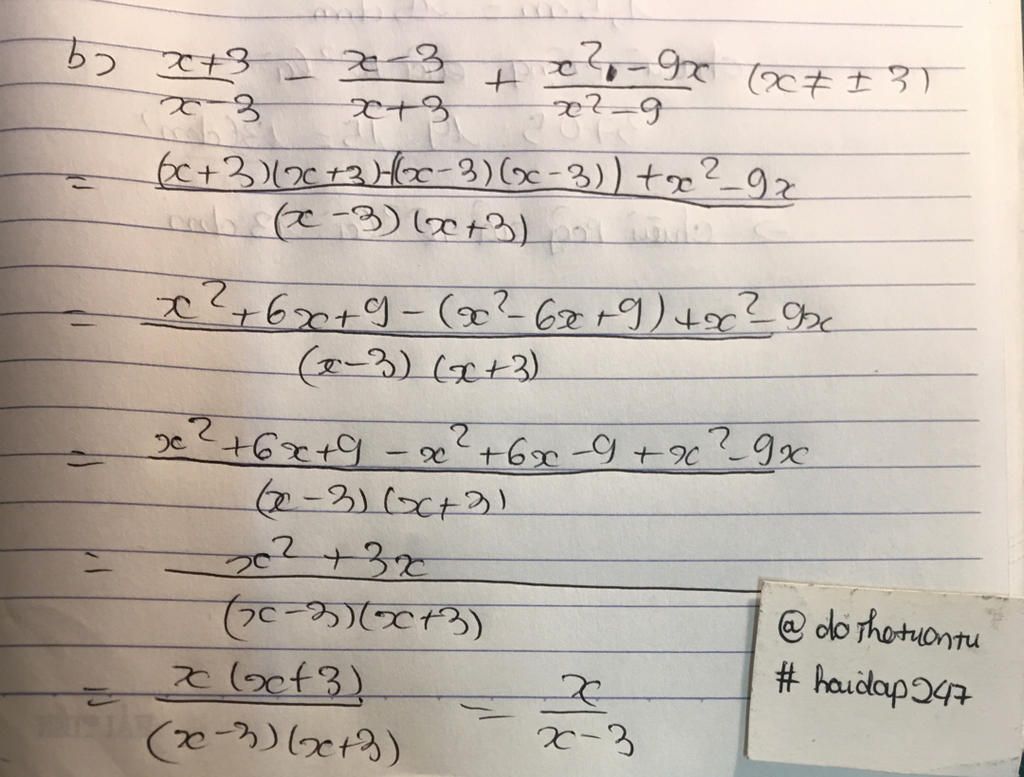 b) (x+3)/(x-3) - (x-3)/(x+3) + (x² - 9x)/(x²-9) (x ≠ ± 3)
= ((x+3)(x+3)-((x-3)(x-3)) + x² - 9x)/((x-3)(x+3))
= (x² + 6x + 9 - (x² - 6x + 9) + x² - 9x)/((x-3)(x+3))
= (x² + 6x + 9 - x² + 6x - 9 + x² - 9x)/((x-3)(x+3))
= (x² + 3x)/((x-3)(x+3))
= (x(x+3))/((x-3)(x+3)) = x/(x-3)
# haidap247